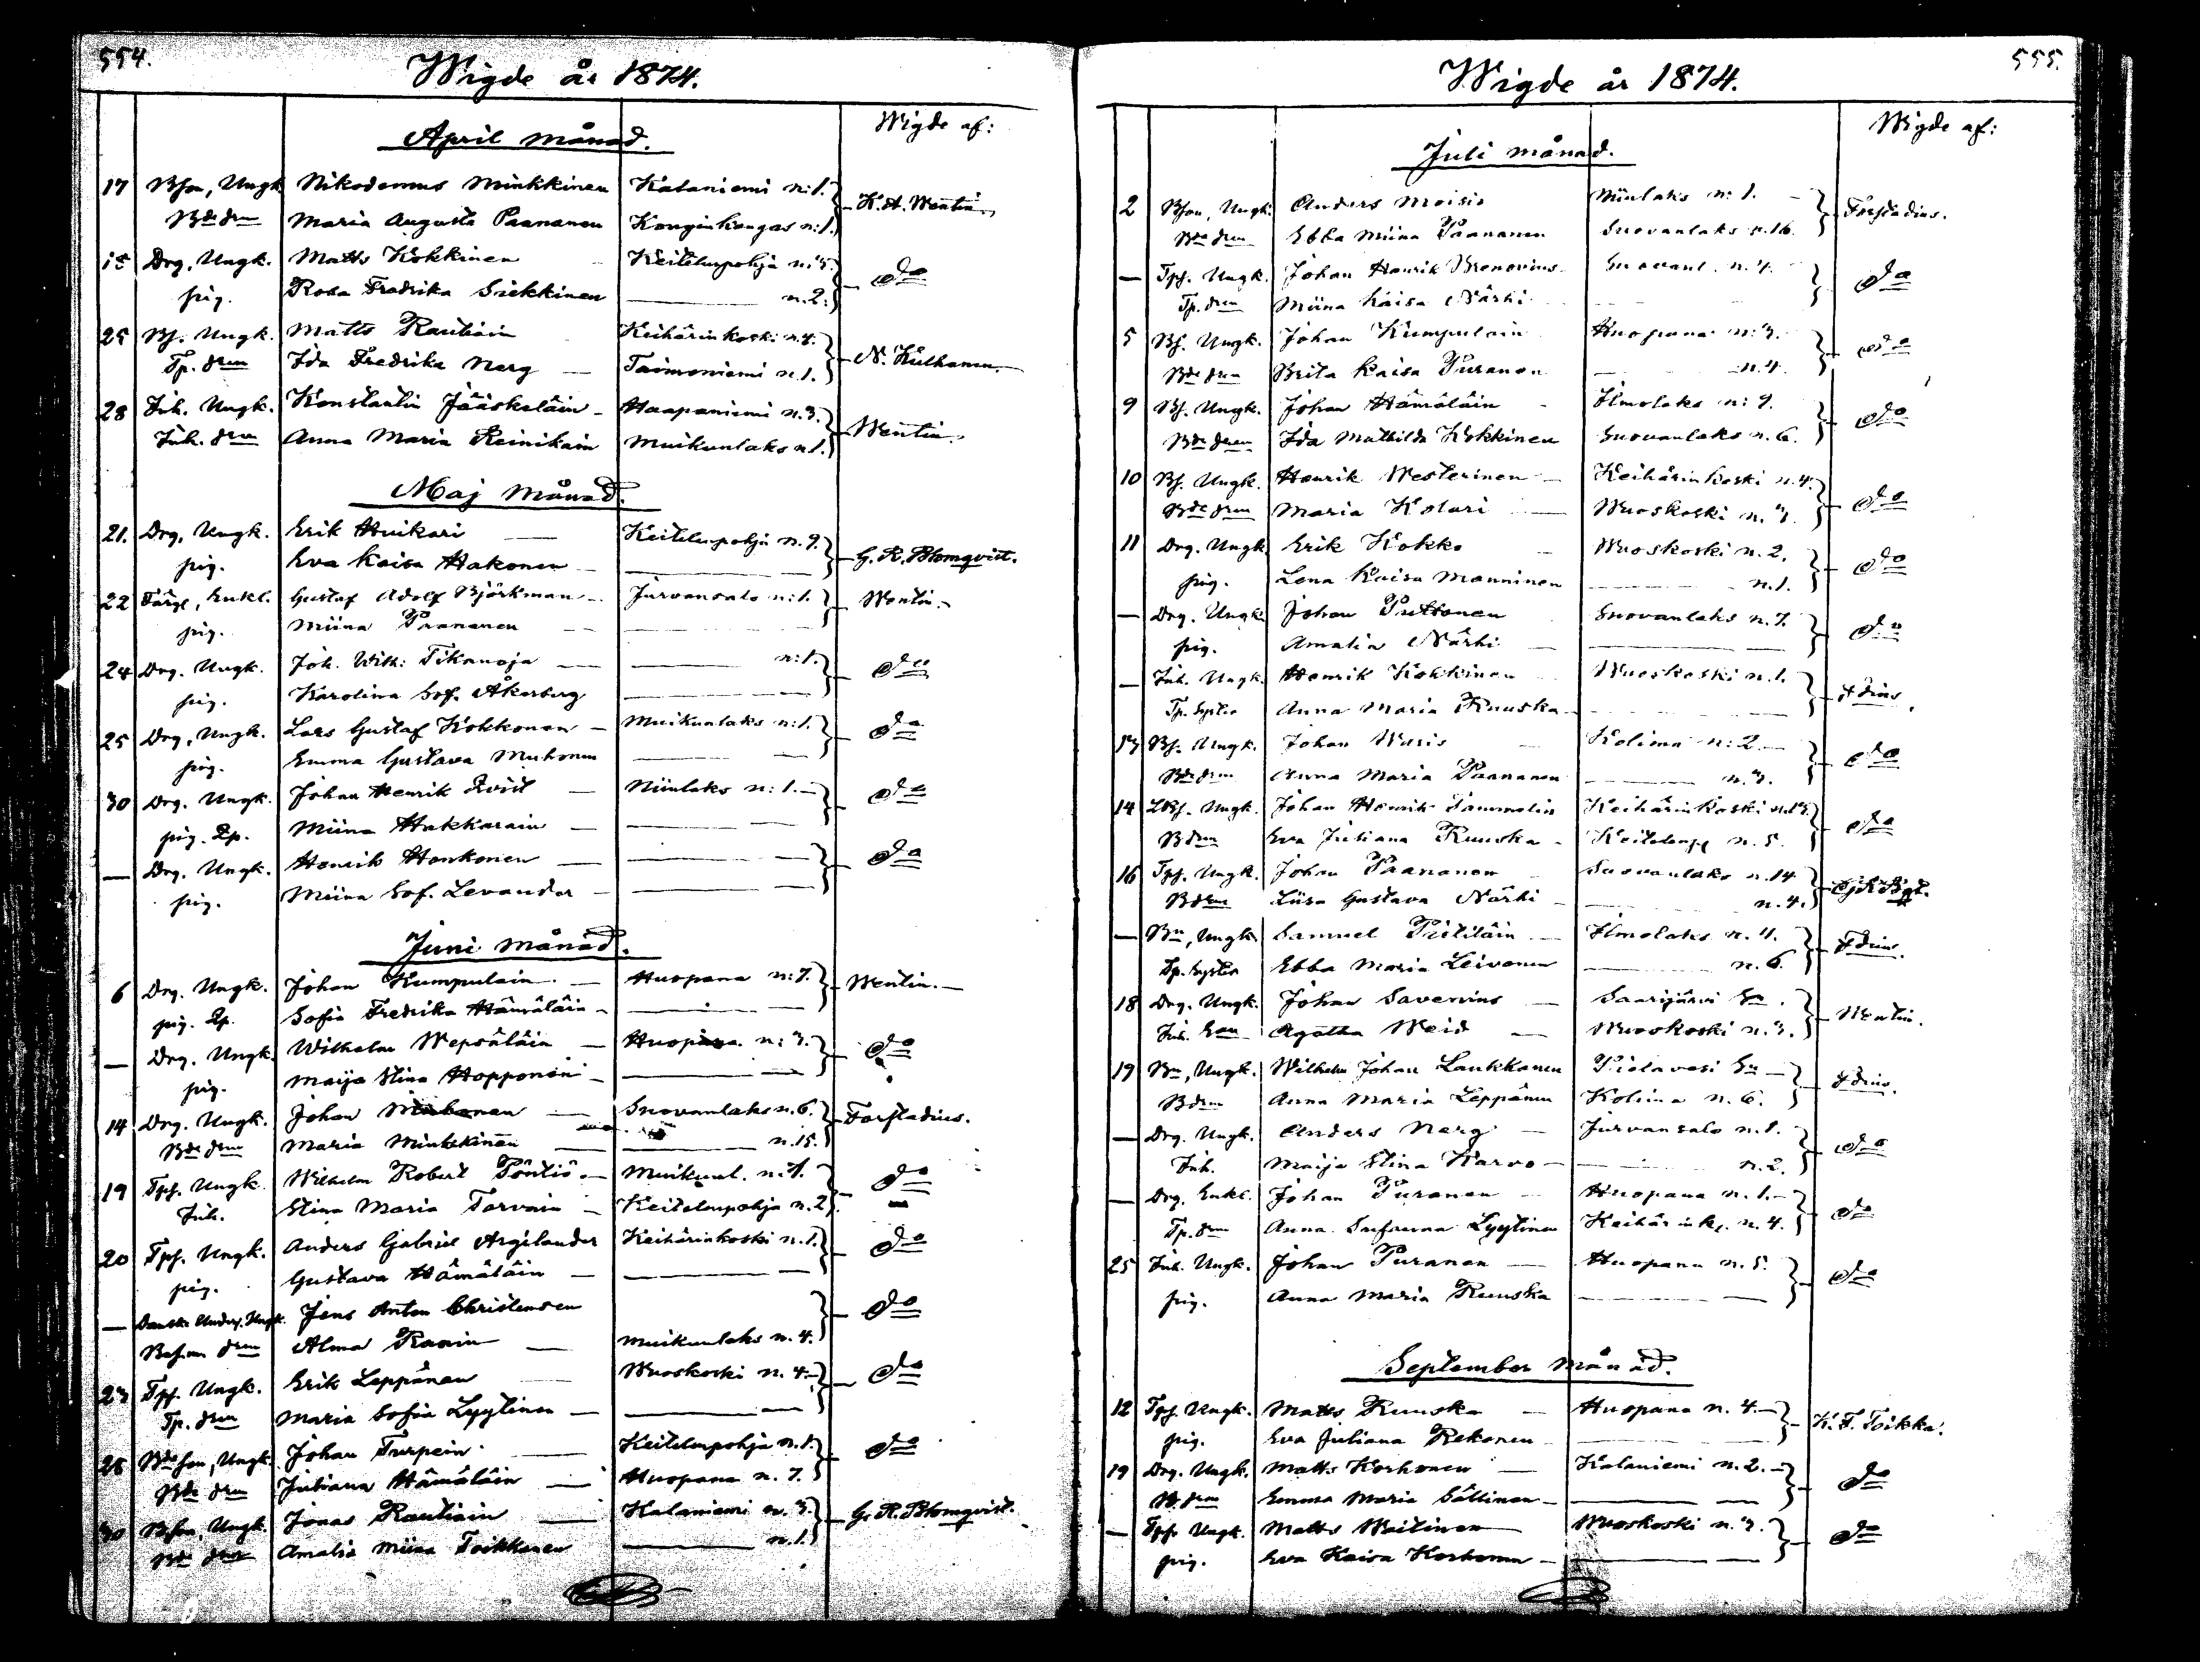 554.
Wigde år 1874.
Wigde af:
April månad.
17 Bson, Ungk. Nikodemus Minkkinen Kalaniemi n:1. K. A. Wentin
Bde drn Maria Augusta Paananen Konginkangas n:1.
18 Drg, Ungk. Matts Kokkinen Keitelenpohja n:5. do
pig. Rosa Fredrika Siekkinen n.2.
25 Bs. Ungk. Matts Rautiain Keihärinkoski n.4. N. Kiilhanen.
Tp. drn Ida Fredrika Narg — Taimoniemi n.1.
28 Inh. Ungk. Konstantin Jääskeläin – Haapaniemi n.3. Wentin
Inh. drn Anna Maria Reinikain Muikunlaks n.1.
Maj månad.
21. Drg. Ungk. Erik Huikari — Keitelenpohja n.9. G. R. Blomqvist.
pig. Eva Kaisa Hakonen
22 Färg., Enkl. Gustaf Adolf Björkman – Jurvansalo n:1. Wentin
pig. Miina Paananen —
24 Drg. Ungk. Joh. Wilh: Tikanoja — n:1. do
pig. Karolina Sof. Åkerberg
25 Drg, Ungk. Lars Gustaf Kokkonen – Muikunlaks n:1. do
pig. Emma Gustava Muhonen
30 Drg. Ungk. Johan Henrik Qvist — Niinlaks n:1. do
pig. Qp. Miina Hakkarain —
— Drg. Ungk. Henrik Honkonen — do
pig. Miina Sof. Levander –
Juni månad.
6 Drg. Ungk. Johan Kumpulain. – Huopana n:7. Wentin.
pig. Qp. Sofia Fredrika Hämäläin –
— Drg. Ungk. Wilhelm Wepsäläin – Huopana n:3. do
pig. Maija Stina Hopponen –
14 Drg. Ungk. Johan — Suovanlaks n.6. Forstadius.
Bde drn Maria Minkkinen n.15.
19 Tps. Ungk. Wilhelm Robert Pöntiö – Muikunl. n:1. do
Inh. Stina Maria Tarvain – Keitelenpohja n.2.
20 Tps. Ungk. Anders Gabriel Argilander Keihärinkoski n.1. do
pig. Gustava Hämäläin –
— Danske Unders. Ungk. Jens Anton Christensen do
drn Alma Roain — Muikunlaks n.4.
23 Tps. Ungk. Erik Leppänen — Wuoskoski n.4. do
Tp. drn Maria Sofia Lyytinen —
28 Bdeson, Ungk. Johan Turpein — Keitelenpohja n.1. do
Bde drn Juliana Hämäläin — Huopana n.7.
30 Bson, Ungk. Jonas Rautiain — Kalaniemi n.3. G. R. Blomqvist.
Bde drn Amalia Miina Toikkanen n.1.
555.
Wigde år 1874.
Wigde af:
Juli månad.
2 Bson, Ungk. Anders Moisio Niinlaks n:1. Forstadius.
Bde drn Ebba Miina Paananen Suovanlaks n.16.
— Tps. Ungk. Johan Henrik Bronovius Suovanl. n.4. do
Tp. drn Miina Kaisa Närhi
5 Bs. Ungk. Johan Kumpulain Huopana n:3. do
Bde drn Brita Kaisa Puranen n.4.
9 Bs. Ungk. Johan Hämäläin – Ilmolaks n:9. do
Bde drn Ida Mathilda Kokkinen Suovanlaks n.6.
10 Bs. Ungk. Henrik Westerinen – Keihärinkoski n.4. do
Bde drn Maria Kolari — Wuoskoski n.3.
11 Drg. Ungk. Erik Kokko – Wuoskoski n.2. do
pig. Lena Kaisa Manninen n.1.
— Drg. Ungk. Johan Puttonen Suovanlaks n.7. do
pig. Amalia Närhi —
— Inh. Ungk. Henrik Kokkinen Wuoskoski n.1. Fdius
Tp. Syster Anna Maria Ruuska
13 Bs. Ungk. Johan Waris – Kolima n:2. do
Bde drn Anna Maria Paananen n.3.
14 LBs. Ungk. Johan Henrik Tammelin Keihärinkoski do
B drn Eva Juliana Ruuska – Keitelenp. n.5.
16 Tps. Ungk. Johan Paananen Suovanlaks n.14
B drn Liisa Gustava Närhi – n.4.
— Bn, Ungk. Samuel Piitiläin — Ilmolaks n.11. Fdius.
Tp. Syster Ebba Maria Leivonen n.6.
18 Drg. Ungk. Johan Savenius — Saarijärvi Sn. Wentin.
Inh. Agatha Weid — Wuoskoski n.3.
19 Bn, Ungk. Wilhelm Johan Laukkanen Pielavesi Sn Fdius.
B drn Anna Maria Leppänen Kolima n.6.
— Drg. Ungk. Anders Narg – Jurvansalo n.1. do
Inh. Maija Stina Karvo – n.2.
— Drg. Enkl. Johan Puranen — Huopana n.1. do
Tp. drn Anna Susanna Lyytinen Keihärinkg. n.4.
25 Inh. Ungk. Johan Puranen — Huopana n.5. do
pig. Anna Maria Ruuska
September månad.
12 Tps. Ungk. Matts Ruuska — Huopana n.4. K. F. Toikka.
pig. Eva Juliana Rekonen
19 Drg. Ungk. Matts Korhonen — Kalaniemi n.2. do
B. drn Emma Maria Sällinen –
— Tps. Ungk. Matts Waitinen Wuoskoski n.3. do
pig. Eva Kaisa Korhonen –